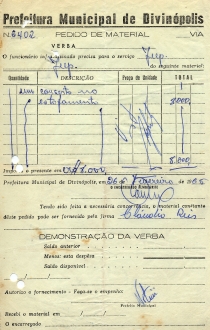 Prefeitura Municipal de Divinópolis
N. 6402 PEDIDO DE MATERIAL VIA
VERBA
O funcionário abaixo precisa para o serviço Jeep
Jeep. do seguinte material:
Quantidade DESCRIÇÃO Preço da Unidade TOTAL
um concerto no 8.000,
estofamento
8.000
Importa o presente em Cr$ 8.000,
Prefeitura Municipal de Divinópolis, em 26 de Fevereiro de 1965
o encarregado Almoxarife
Tendo sido feita a necessária concorrência, o material constante
dêste pedido pode ser fornecido pela firma Claudio Reis
DEMONSTRAÇÃO DA VERBA
Saldo anterior
Menos: esta despêsa
Saldo disponível
Autorizo o fornecimento - Faça-se o empenho:
Prefeito Municipal
Recebi o material em
O encarregado